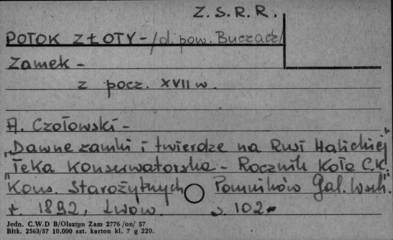 Z. S. R. R.
POTOK ZŁOTY - /d. pow. Buczacz/
Zamek -
z pocz. XVII w.
A. Czołowski -
"Dawne zamki i twierdze na Rusi Halickiej"
"Teka Konserwatorska - Rocznik Koła C.K.
Kons. Starożytnych Pomników Gal. Wsch."
t. 1892, Lwów s. 102 -
Jedn. C.W.D B/Olsztyn Zam 2776 /on/ 57
Bltk. 2563/57 10.000 szt. karton kl. 7 g 220.